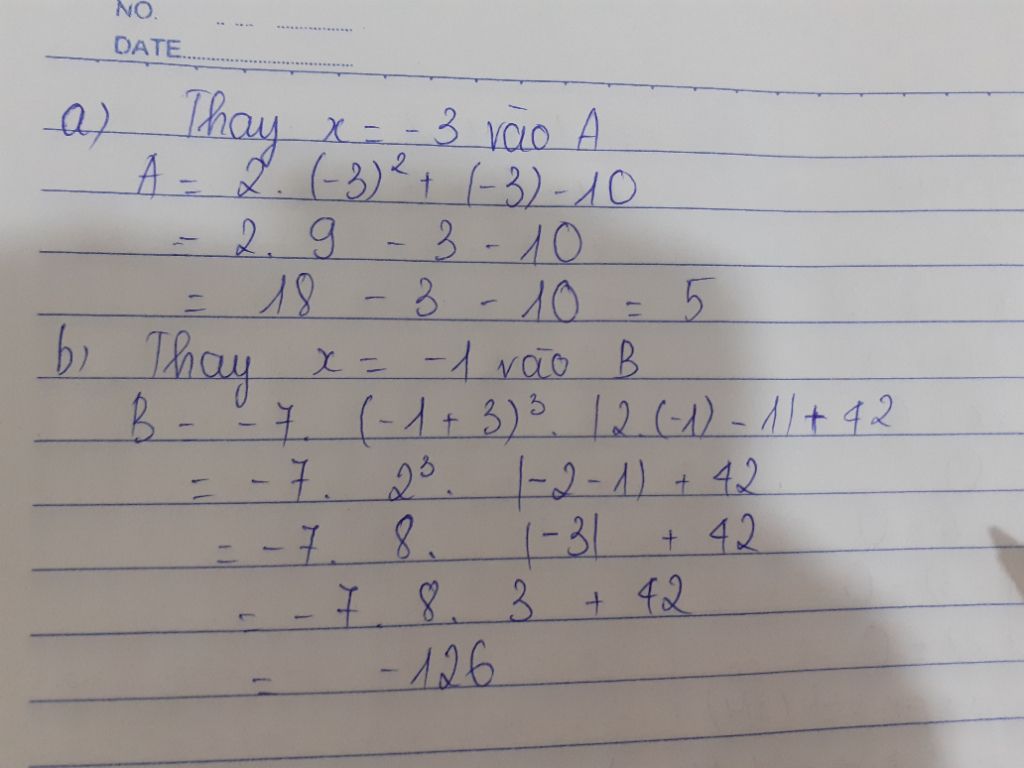 NO.
DATE
a) Thay x = -3 vào A
A = 2. (-3)² + (-3) - 10
= 2. 9 - 3 - 10
= 18 - 3 - 10 = 5
b) Thay x = -1 vào B
B = -7. (-1 + 3)³. |2.(-1) - 1| + 42
= -7. 2³. |-2 - 1| + 42
= -7. 8. |-3| + 42
= -7. 8. 3 + 42
= -126